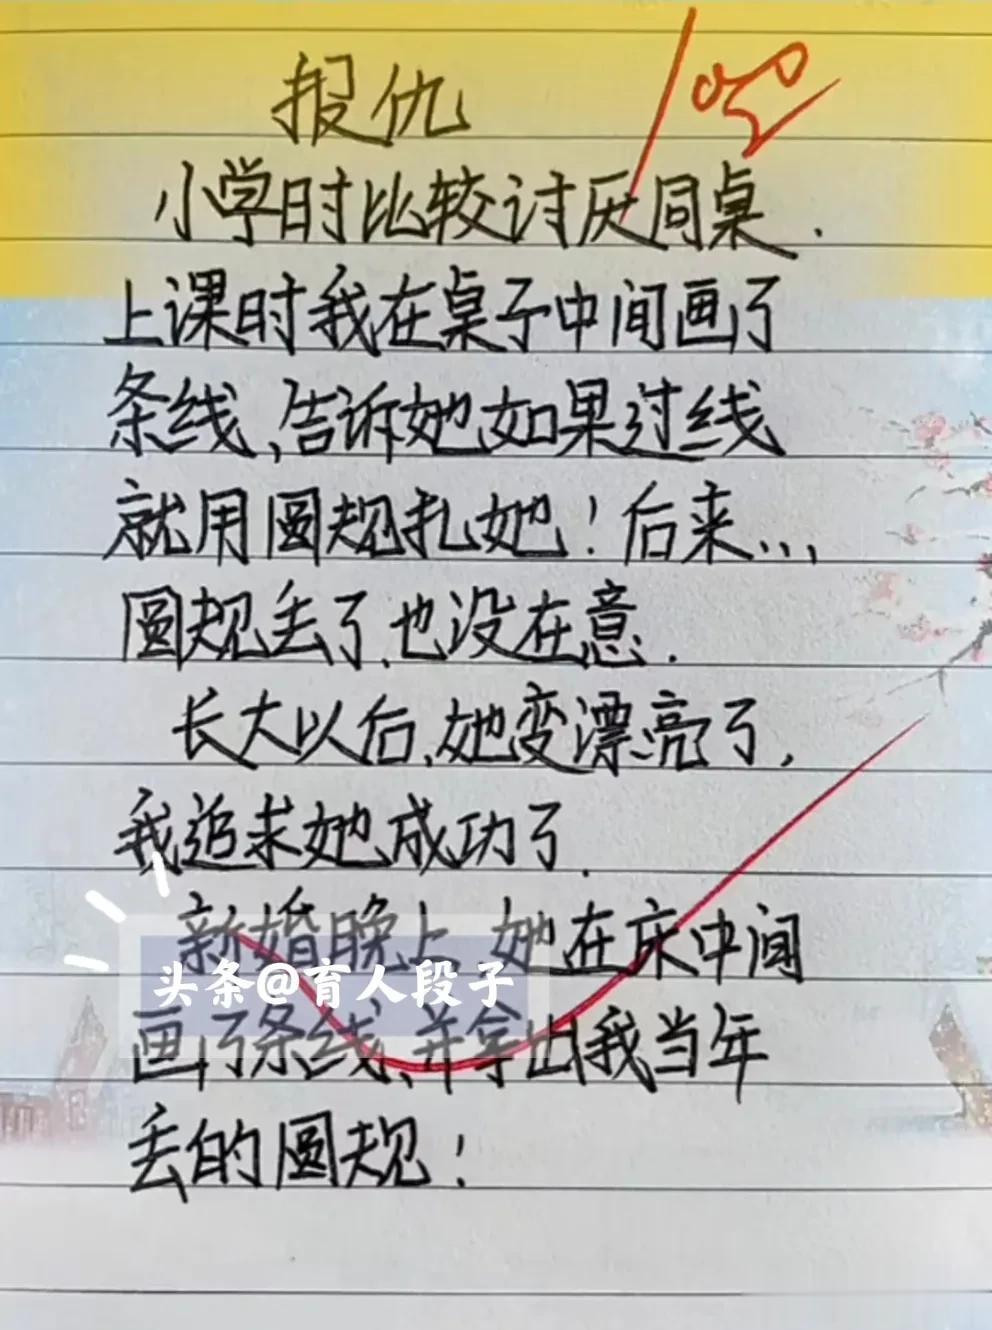 报仇
100
小学时比较讨厌同桌.
上课时我在桌子中间画了
条线,告诉她如果过线
就用圆规扎她!后来...
圆规丢了.也没在意.
长大以后,她变漂亮了,
我追求她成功了.
新婚晚上,她在床中间
头条@育人段子
画了条线,并拿出我当年
丢的圆规!